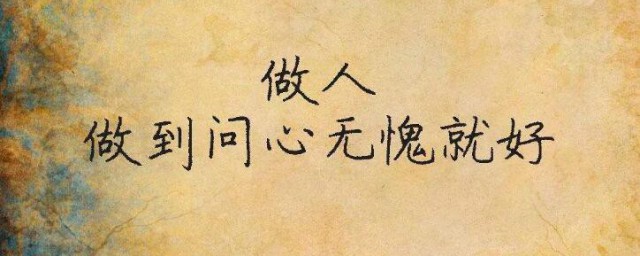 做人
做到问心无愧就好